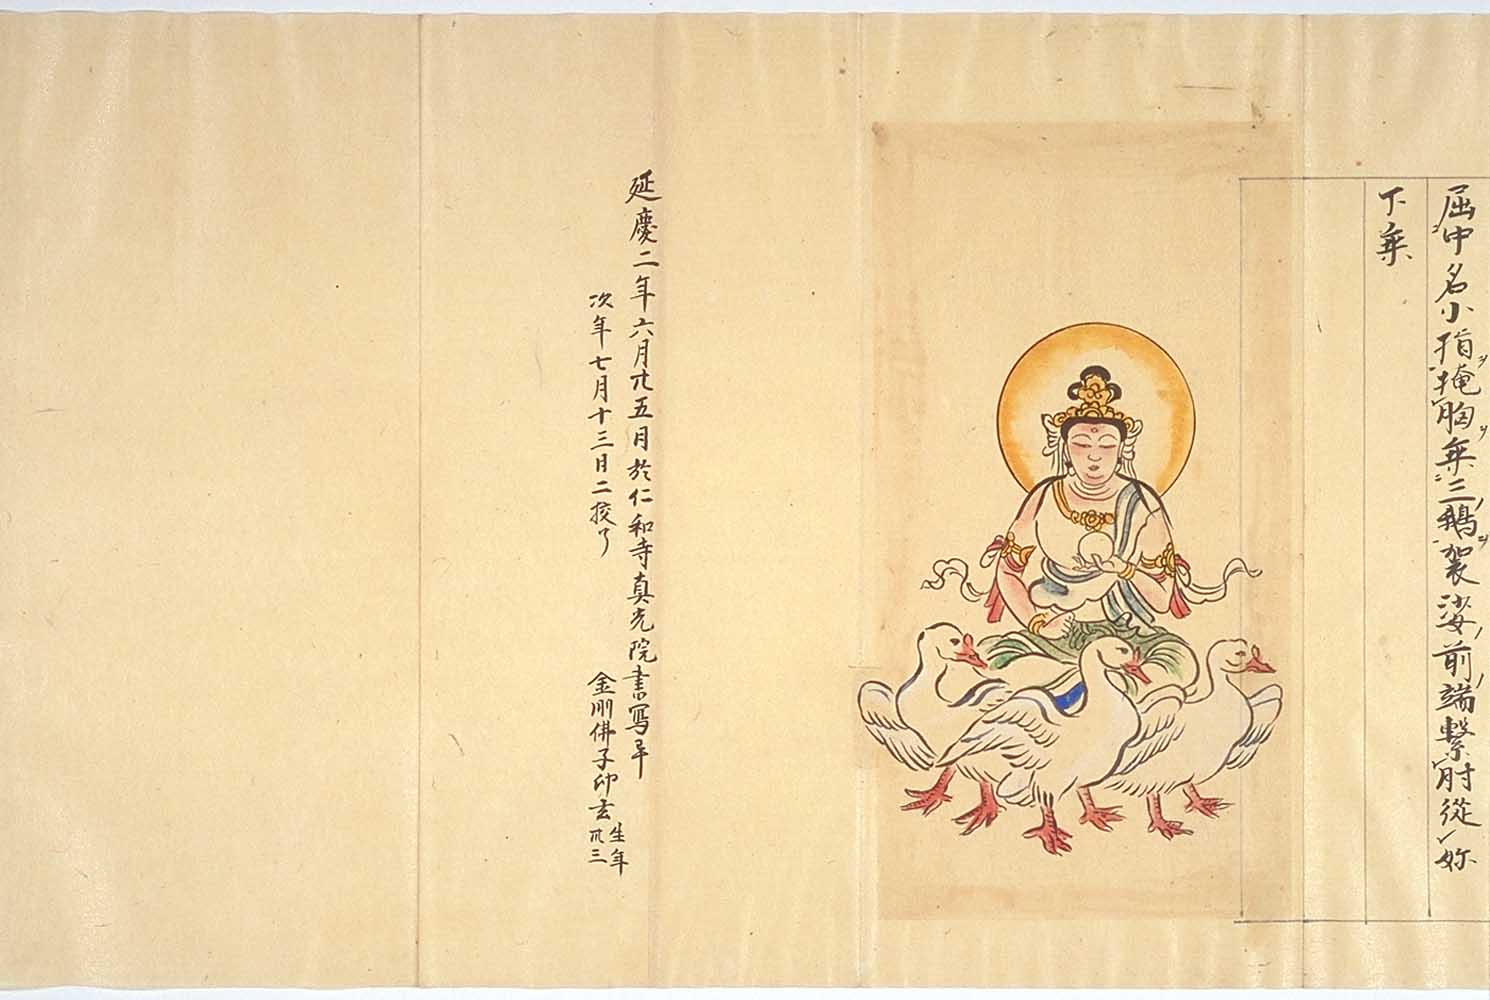 屈中名小指掩胸乗三鵝袈娑前端繋肘從妳
下乗
延慶二年六月廿五月於仁和寺真光院書寫畢
次年七月十三日二挍了
金剛佛子印玄
生年
卅三